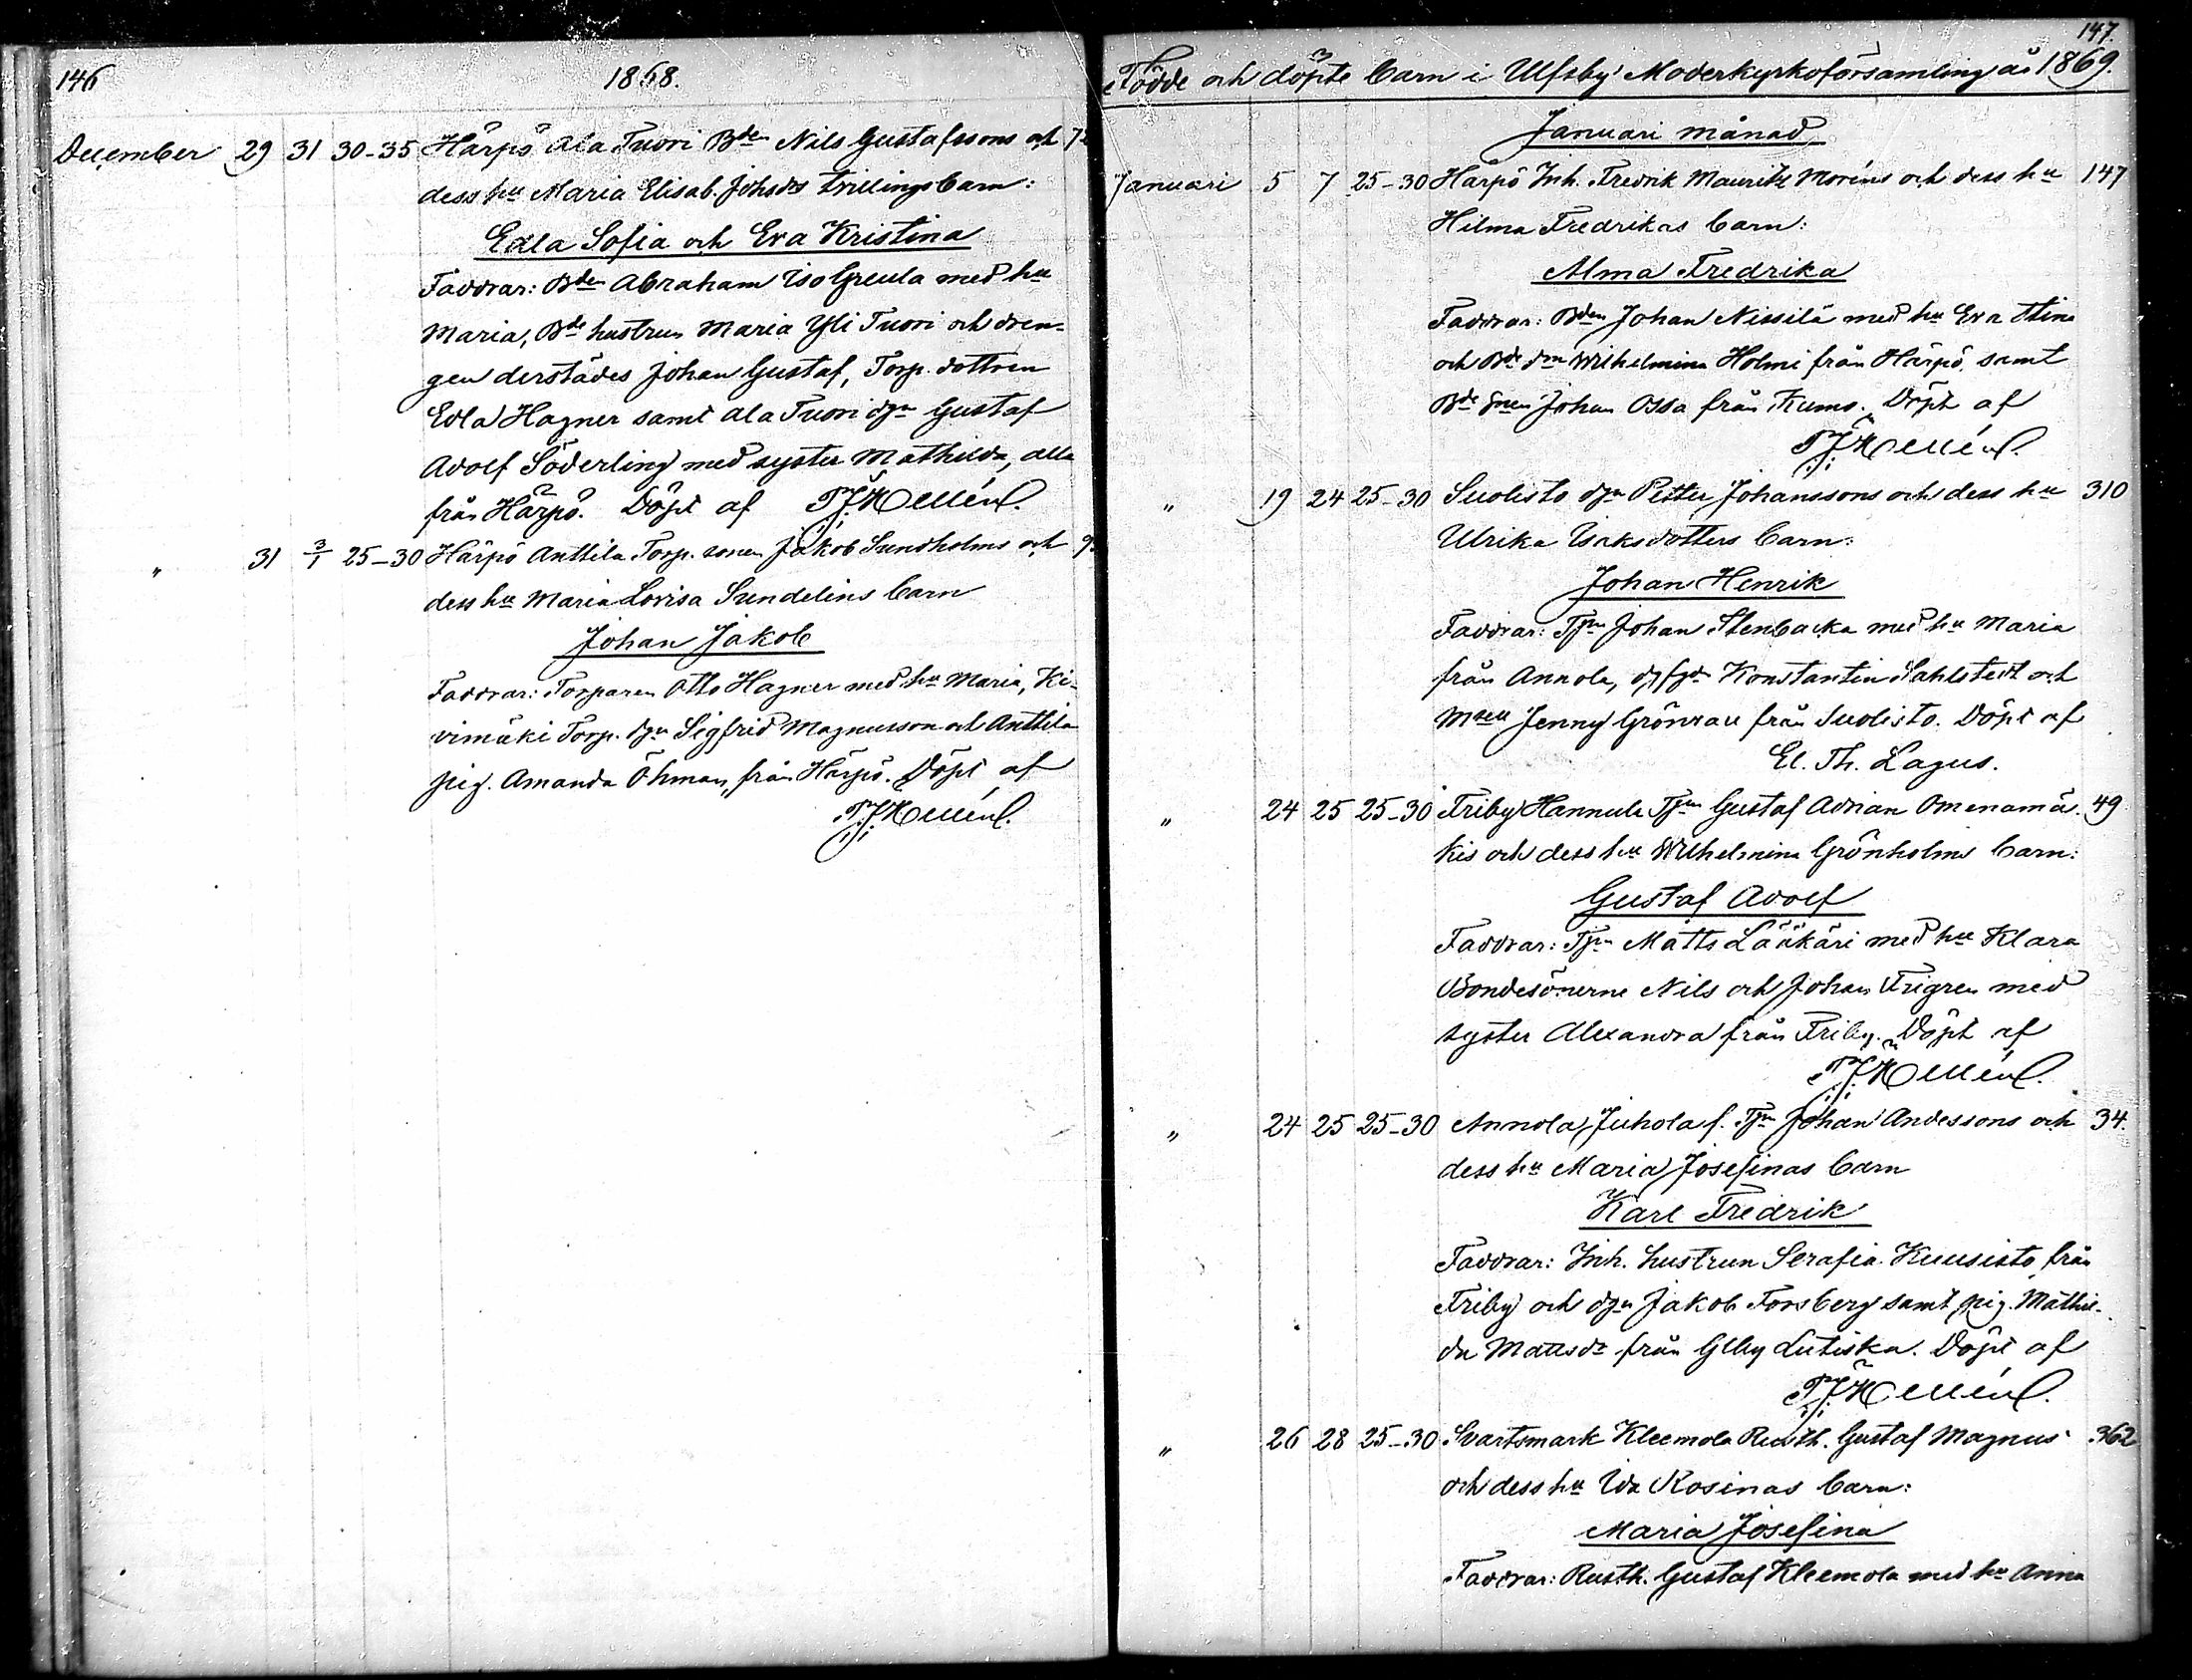 146
1868.
December 29 31 30-35 Härpö Ala Tuori Bden Nils Gustafssons och
dess hu Maria Elisab. Johsdrs tvillingsbarn:
Edla Sofia och Eva Kristina
Faddrar: Bden Abraham Iso Greula med hu
Maria, Bde hustrun Maria Yli Tuori och dren-
gen derstädes Johan Gustaf, Torp. dottren
Edla Hagner samt Ala Tuori dgn Gustaf
Adolf Söderling med syster Mathilda, alla
från Härpö. Döpt af T.J. Hellén.
" 31 3/1 25-30 Härpö Anttila Torp. sonen Jakob Sundholms och
dess hu Maria Lovisa Sundelins barn
Johan Jakob
Faddrar: Torparen Otto Hagner med hu Maria, Ki-
vimäki Torp. dgn Sigfrid Magnusson och Anttila
pig. Amanda Öhman, från Härpö. Döpt af
T.J. Hellén.
147.
Födde och döpte barn i Ulfsby Moderkyrkoförsamling år 1869.
Januari månad
Januari 5 7 25-30 Härpö Inh. Fredrik Mauritz Noréns och dess hu 147
Hilma Fredrikas barn:
Alma Fredrika
Faddrar: Bden Johan Nissilä med hu Eva Stina
och Bde dn Wilhelmina Holmi från Härpö, samt
Bde snen Johan Ossa från Kumo. Döpt af
T.J. Hellén.
" 19 24 25-30 Suolisto dgn Petter Johanssons och dess hu 310
Ulrika Isaksdotters barn:
Johan Henrik
Faddrar: Tpn Johan Stenbacka med hu Maria
från Annola, Konstantin Sahlstedt och
Msell Jenny Grönvall från Suolisto. Döpt af
El. Th. Lagus.
" 24 25 25-30 Friby Hannula Tpn Gustaf Adrian Omenamä- 49
kis och dess hu Wilhelmina Grönholms barn:
Gustaf Adolf
Faddrar: Tpn Matts Lääkäri med hu Klara
Bondesönerne Nils och Johan Frigren med
syster Alexandra från Friby. Döpt af
T.J. Hellén.
" 24 25 25-30 Annola, Juhola f. Tpn Johan Anderssons och 34.
dess hu Maria Josefinas barn
Karl Fredrik
Faddrar: Inh. hustrun Serafia Kuusisto, från
Friby och dgn Jakob Forsberg samt pig. Mathil-
da Mattsdr från Glby Lutiska. Döpt af
T.J. Hellén.
" 26 28 25-30 Svartsmark Kleemola Rusth. Gustaf Magnus 362
och dess hu Ida Rosinas barn:
Maria Josefina
Faddrar: Rusth. Gustaf Kleemola med hu Anna